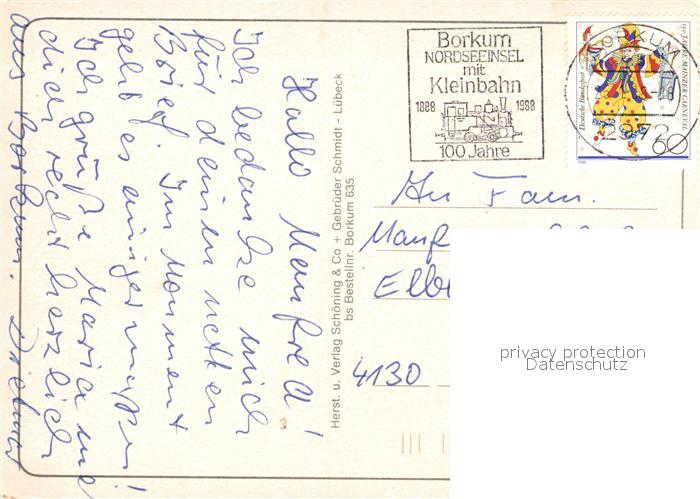 Hallo Manfred!
Ich bedanke mich
für deinen netten
Brief. Im Moment
geht es einigermaßen!
Ich grüße Maria und
dich recht herzlich
aus Borkum. Dietmar
Herst. u. Verlag Schöning & Co + Gebrüder Schmidt - Lübeck
bs Bestellnr. Borkum 635
Borkum
NORDSEEINSEL
mit
Kleinbahn
1888 1988
100 Jahre
BORKUM
2972
Deutsche Bundespost
150 JAHRE MAINZER CARNEVAL
60
An Fam.
Manf
Elbe
4130
privacy protection
Datenschutz